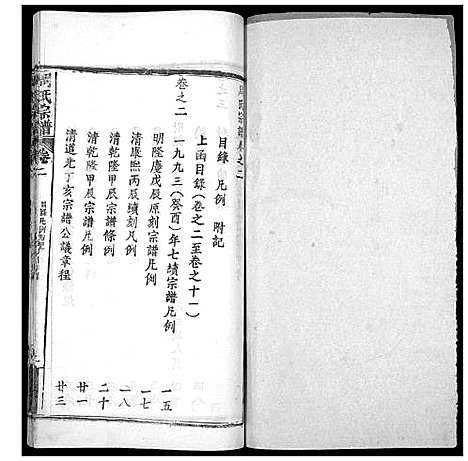 周氏宗譜卷之二
目錄 凡例 附記
上函目錄（卷之二至卷之十一）
卷之二
一九九三（癸酉）年七續宗譜凡例 一五
明隆慶戊辰原刻宗譜凡例 一七
清康熙丙辰續刻凡例 一八
清乾隆甲辰宗譜條例 二十
清乾隆甲辰宗譜凡例 廿一
清道光丁亥宗譜公議章程 廿三
周氏宗譜 卷二